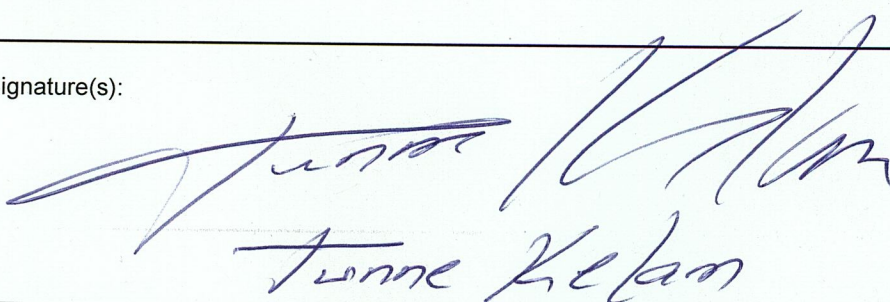 ignature(s):
Tunne Kelam
Tunne Kelam